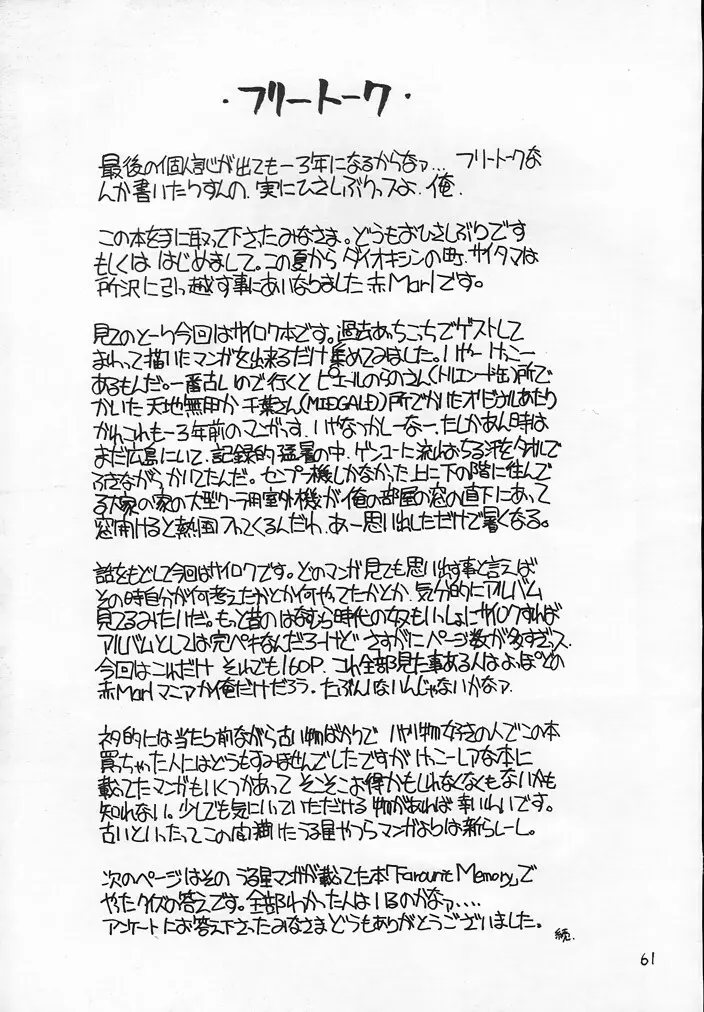 ・フリートーク・
最後の個人誌が出ても一3年になるからなァ… フリートークな
んか書いたりすんの、実にひさしぶりっスよ、俺.
この本を手に取って下さったみなさま。どうもおひさしぶりです
もしくは はじめまして。この夏から ダイオキシンの町、サイタマは
所沢に引っ越す事にあいなりました赤Marlです。
見てのとーり今回はサイロク本です。過去あっちこっちでゲストして
まわって描いたマンガを出来るだけ集めてみました。いやー けっこー
あるもんだ。一番古いので行くと ピエールのらのさん(トルエンド缶)所で
かいた 天地無用か 千葉さん(MIDGALD)所でかいたオリジナルあたり
かれこれも一3年前のマンガっす. いやなつかしーなー. たしかあん時は
まだ広島にいて、記録的猛暑の中、ゲンコーに流れおちる汗をタオルで
ふきながら かいてたんだ。センプー機しかなかった上に下の階に住んで
る大家の家の大型クーラー用室外機が俺の部屋の窓の直下にあって
窓開けると熱風入ってくるんだわ、あー思い出しただけで暑くなる。
話をもどして今回はサイロクです。どのマンガ見ても思い出す事と言えば
その時自分が何考えたかとか何やってたかとか、気分的にアルバム
見てるみたいだ。もっと昔のはなむら時代の奴もいっしょにサイロクすれば
アルバムとしては完ペキなんだろーけど さすがに ページ数が多すぎっス.
今回はこれだけ それでも160P. これ全部見た事ある人はよっぽどの
赤Marlマニアか俺だけだろう・たぶんいないんじゃないかなァ.
ネタ的には当たり前ながら古い物ばかりで ハヤリ物好きの人でこの本
買っちゃった人にはどうもすみませんでしたですが けっこーレアな本に
載ってたマンガもいくつかあって そこそこお得かもしれなくなくもないかも
知れない。少しでも気にいっていただける物があれば 幸いいです。
古いといったってこの間描いたうる星やつらマンガよりは新らしーし。
次のページはその うる星マンガが載ってた本「Favourite Memory」で
やったクイズの答えです。全部わかった人はいるのかなァ....
アンケートにお答え下さったみなさまどうもありがとうございました。
続.
61